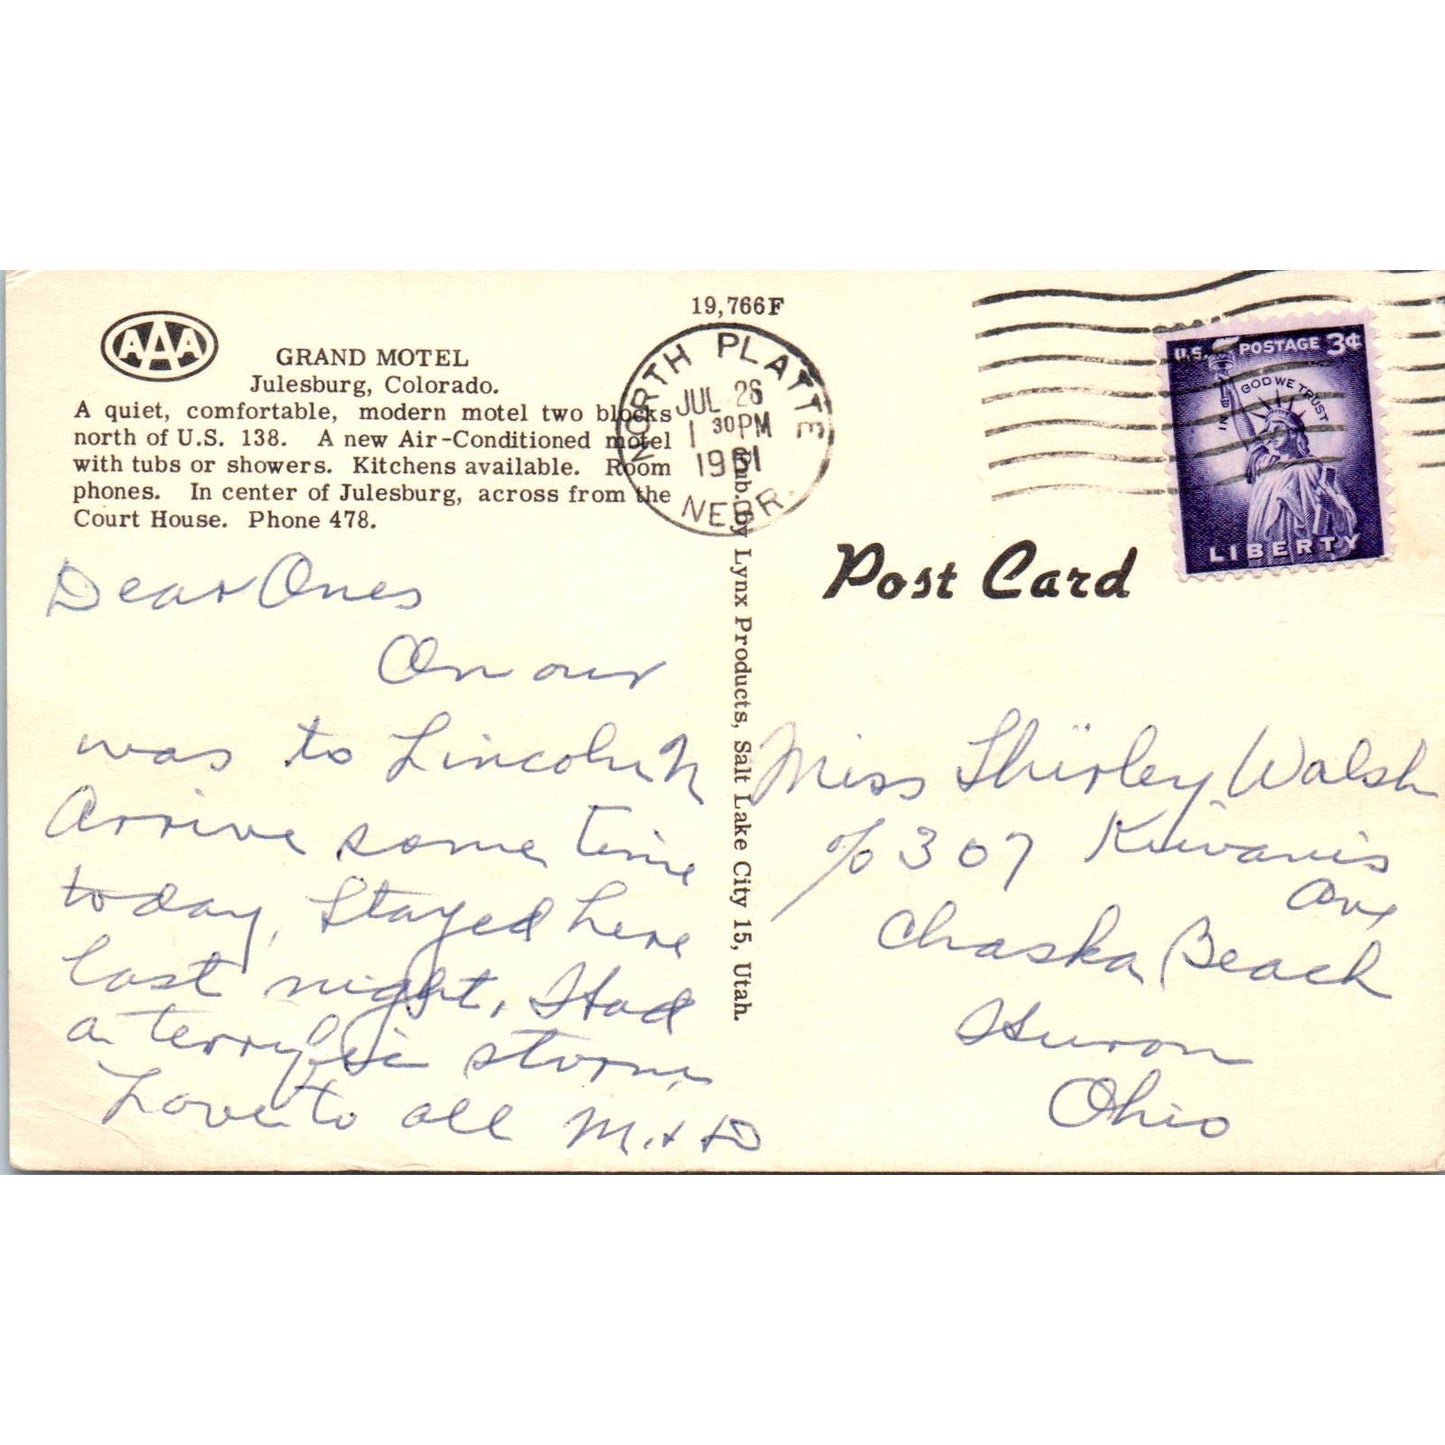 19,766F
AAA
GRAND MOTEL
Julesburg, Colorado.
A quiet, comfortable, modern motel two blocks
north of U.S. 138. A new Air-Conditioned motel
with tubs or showers. Kitchens available. Room
phones. In center of Julesburg, across from the
Court House. Phone 478.
NORTH PLATTE
JUL 26
1 30 PM
1961
NEBR.
U.S. POSTAGE 3¢
IN GOD WE TRUST
LIBERTY
Post Card
Pub. by Lynx Products, Salt Lake City 15, Utah.
Dear Ones
On our
was to Lincoln N
Arrive some time
today, Stayed here
last night, Had
a terrific storm
Love to all M. + D
Miss Shirley Walsh
c/o 307 Kiwanis
Ave
Chaska Beach
Huron
Ohio